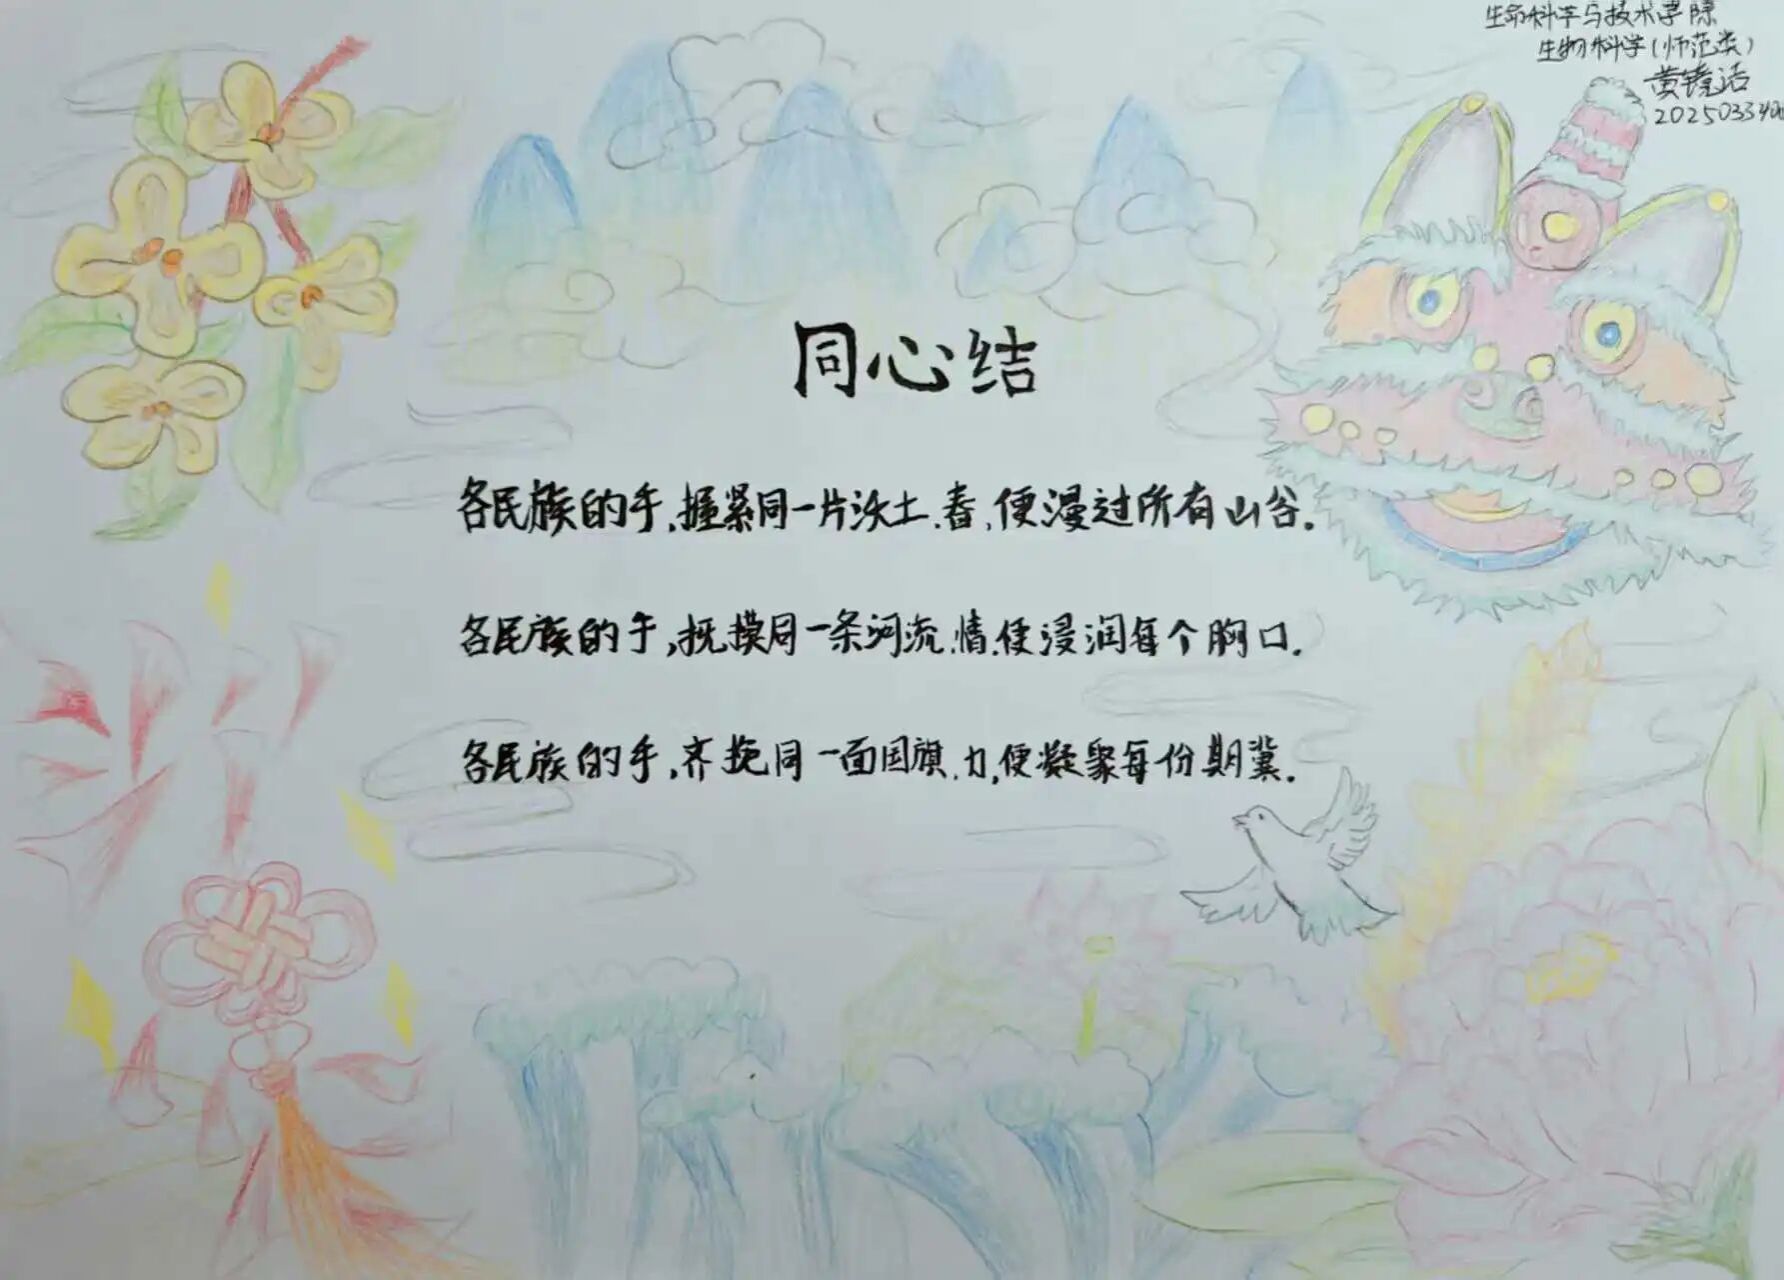 生命科学与技术学院
生物科学(师范类)
黄镱洁
202503340
同心结
各民族的手,握紧同一片沃土.春,便漫过所有山谷.
各民族的手,抚摸同一条河流.情.便浸润每个胸口.
各民族的手,齐挽同一面国旗.力,便凝聚每份期冀.